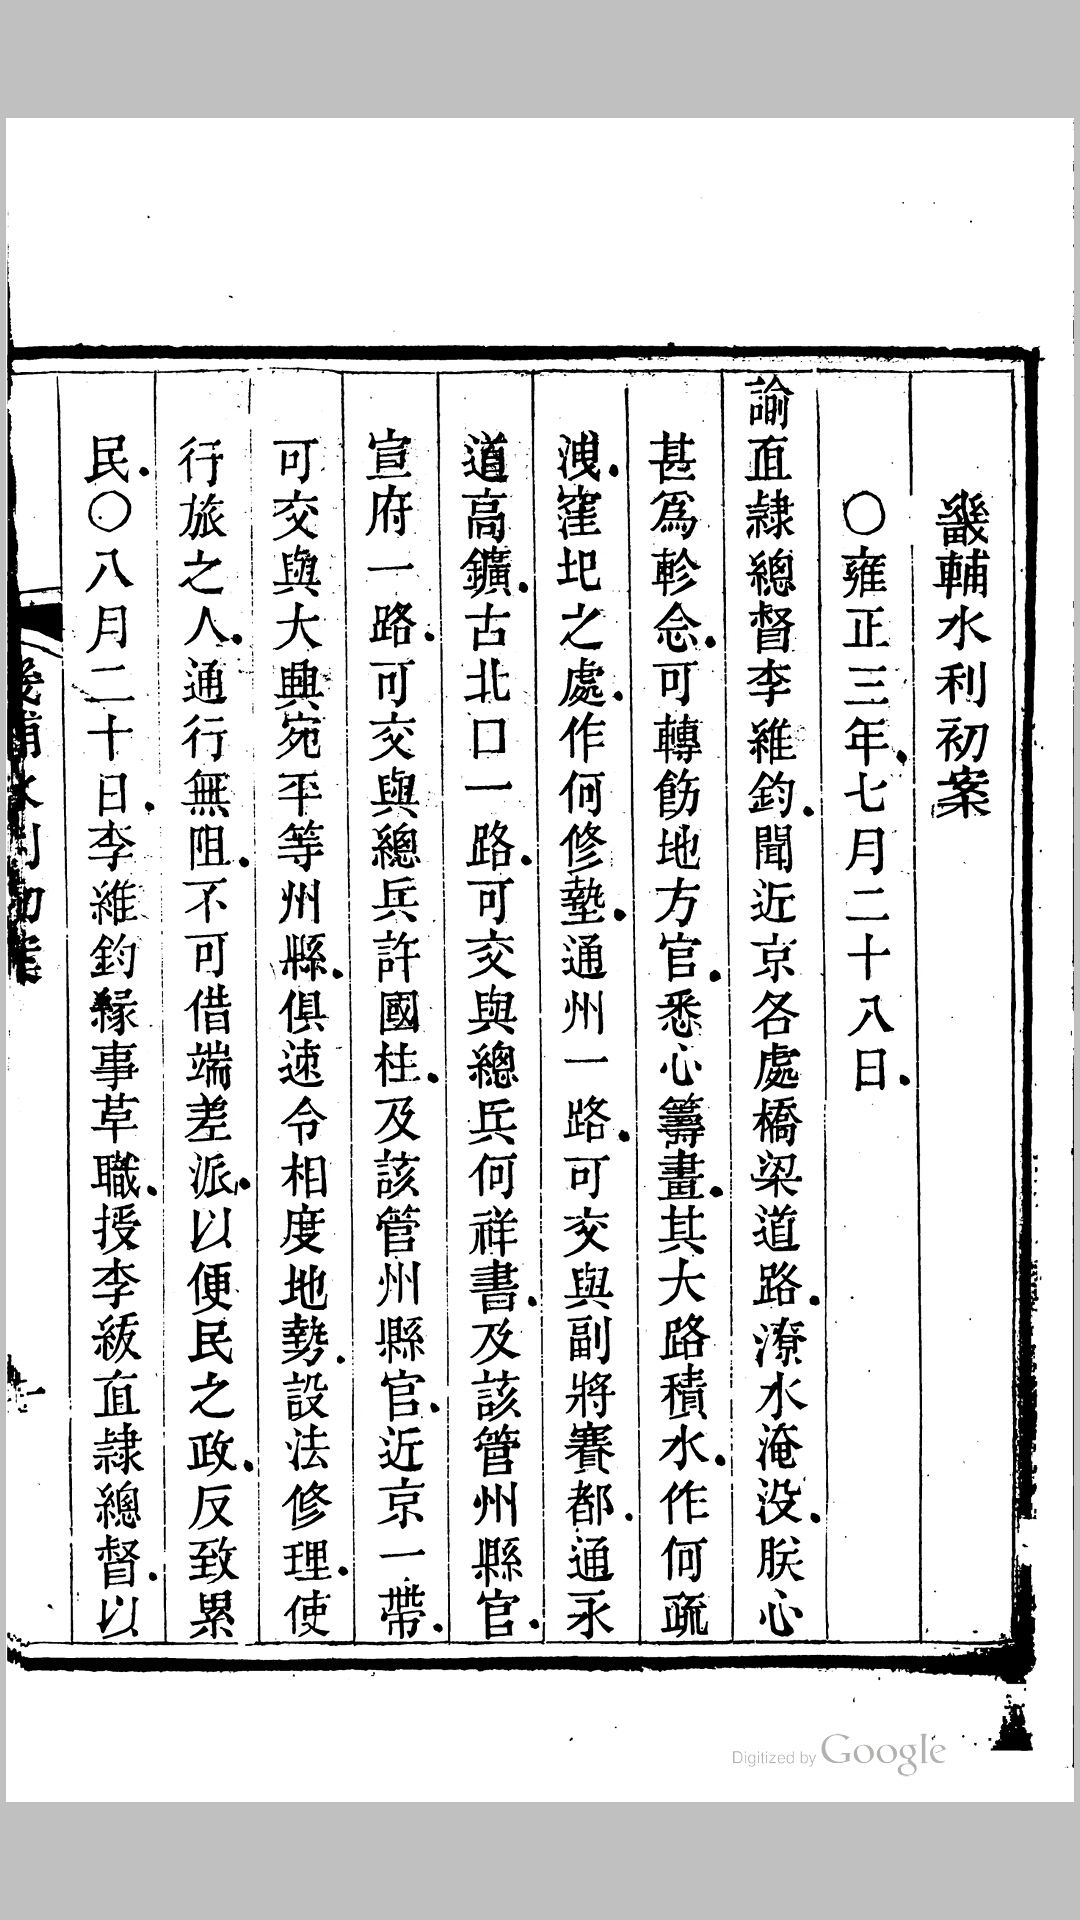 畿輔水利初案
○雍正三年七月二十八日
諭直隷總督李維鈞聞近京各處橋梁道路潦水淹没朕心
甚爲軫念可轉飭地方官悉心籌畫其大路積水作何疏
洩窪圯之處作何修墊通州一路可交與副將賽都通永
道高鑛古北口一路可交與總兵何祥書及該管州縣官
宣府一路可交與總兵許國柱及該管州縣官近京一帶
可交與大興宛平等州縣俱速令相度地勢設法修理使
行旅之人通行無阻不可借端差派以便民之政反致累
民○八月二十日李維鈞緣事革職授李紱直隷總督以
輔水利初案
一
Digitized by Google